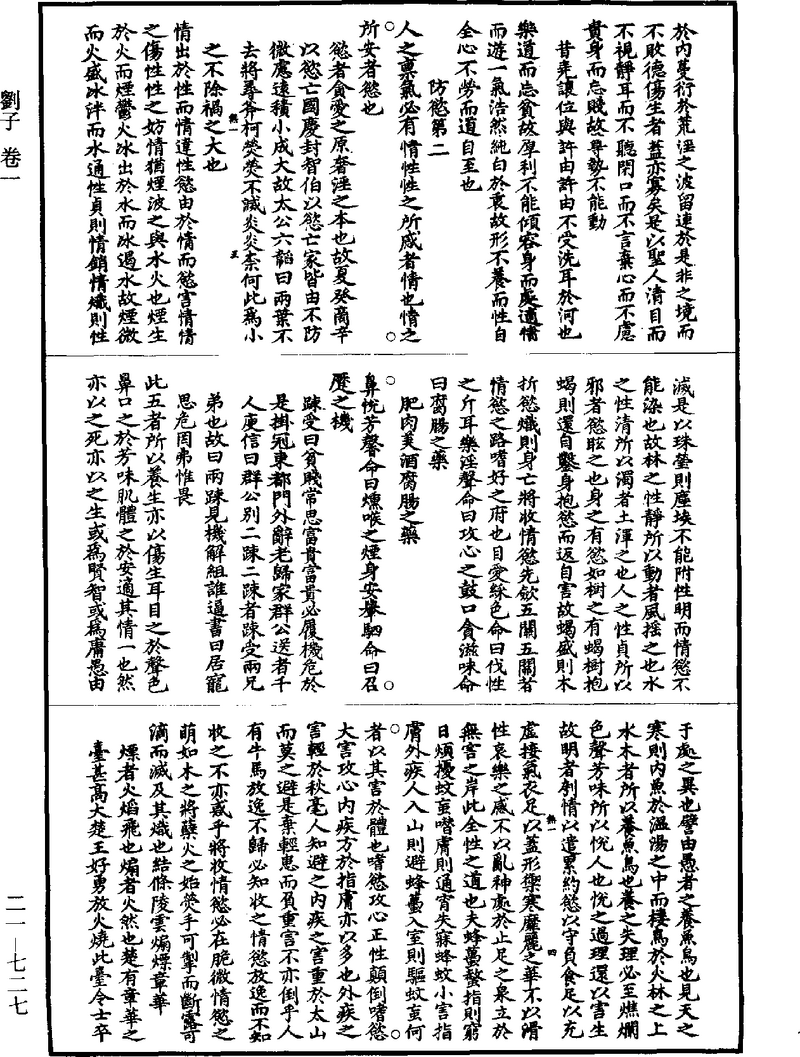 劉子 卷一
於內蔓衍於荒淫之波留連於是非之境而
不敗德傷生者蓋亦寡矣是以聖人清目而
不視靜耳而不聽閉口而不言棄心而不慮
貴身而忘賤故尊勢不能動
昔堯讓位與許由許由不受洗耳於河也
樂道而忘貧故厚利不能傾容身而處適情
而遊一氣浩然純白於衷故形不養而性自
全心不勞而道自至也
防慾第二
人之稟氣必有情性性之所感者情也情之
所安者慾也
慾者貪愛之原奢淫之本也故夏癸商辛
以慾亡國慶封智伯以慾亡家皆由不防
微慮遠積小成大故太公六韜曰兩葉不
去將尋斧柯熒熒不滅炎炎柰何此爲小
之不除禍之大也
情出於性而情違性慾由於情而慾害情情
之傷性性之妨情猶煙波之與水火也煙生
於火而煙鬱火冰出於水而冰遏水故煙微
而火盛冰泮而水通性貞則情銷情熾則性
滅是以珠瑩則塵埃不能附性明而情慾不
能染也故林之性靜所以動者風搖之也水
之性清所以濁者土渾之也人之性貞所以
邪者慾眩之也身之有慾如樹之有蝎樹抱
蝎則還自鑿身抱慾而返自害故蝎盛則木
折慾熾則身亡將收情慾先斂五關五關者
情慾之路嗜好之府也目愛綵色命曰伐性
之斤耳樂淫聲命曰攻心之鼓口貪滋味命
曰腐腸之藥
肥肉美酒腐腸之藥
鼻悅芳馨命曰燻喉之煙身安輦駟命曰召
蹷之機
踈受曰貧賤常思富貴富貴必履機危於
是掛冠東都門外辭老歸家群公送者千
人庾信曰群公別二踈二踈者踈受兩兄
弟也故曰兩踈見機解組誰逼書曰居寵
思危罔弗惟畏
此五者所以養生亦以傷生耳目之於聲色
鼻口之於芳味肌體之於安適其情一也然
亦以之死亦以之生或爲賢智或爲庸愚由
于處之異也譬由愚者之養魚鳥也見天之
寒則內魚於溫湯之中而棲鳥於火林之上
水木者所以養魚鳥也養之失理必至燋爛
色聲芳味所以悅人也悅之過理還以害生
故明者刳情以遣累約慾以守貞食足以充
虛接氣衣足以蓋形禦寒靡麗之華不以滑
性哀樂之感不以亂神處於止足之泉立於
無害之岸此全性之道也夫蜂蠆螫指則窮
日煩擾蚊虻噆膚則通宵失寐蜂蚊小害指
膚外疾人入山則避蜂蠆入室則驅蚊虻何
者以其害於體也嗜慾攻心正性顛倒嗜慾
大害攻心內疾方於指膚亦以多也外疾之
害輕於秋毫人知避之內疾之害重於太山
而莫之避是棄輕患而負重害不亦倒乎人
有牛馬放逸不歸必知收之情慾放逸而不知
收之不亦惑乎將收情慾必在脆微情慾之
萌如木之將蘖火之始熒手可掣而斷露可
滴而滅及其熾也結條陵雲煽熛章華
熛者火焰飛也煽者火然也楚有章華之
臺甚高大楚王好勇放火燒此臺令士卒
二一—七二七